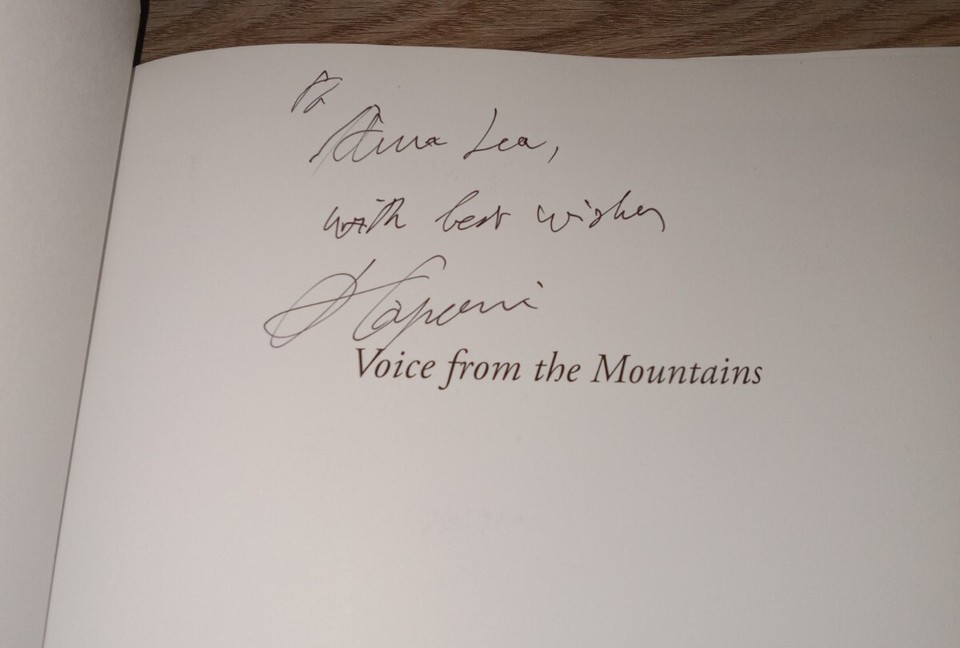 To
Anna Lea,
with best wishes
Voice from the Mountains